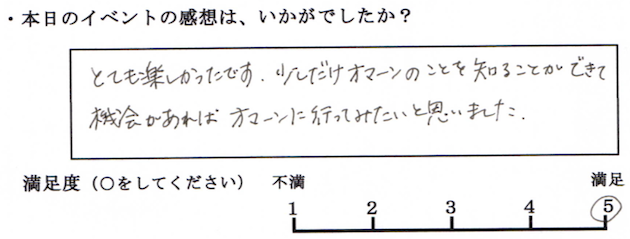 ・本日のイベントの感想は、いかがでしたか？
とても楽しかったです．少しだけオマーンのことを知ることができて
機会があれば オマーンに行ってみたいと思いました．
満足度（○をしてください） 不満 満足
1 2 3 4 5